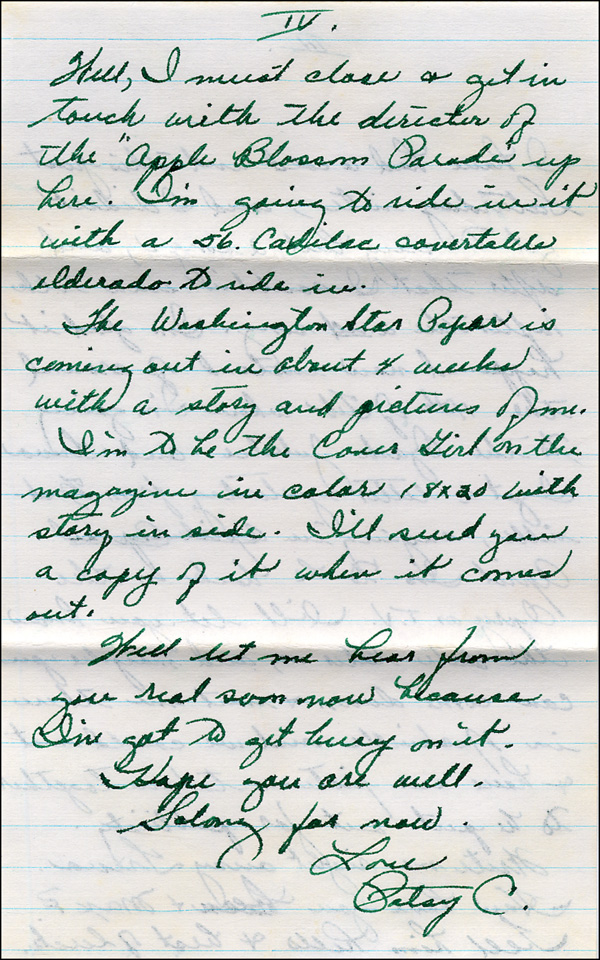 IV.
Well, I must close & get in
touch with the director of
the "Apple Blossom Parade" up
here. I'm going to ride in it
with a 56. Cadilac covertable
elderado to ride in.
The Washington Star Paper is
coming out in about 4 weeks
with a story and pictures of me.
I'm to be the Cover Girl on the
magazine in color 18x20 with
story in side. I'll send you
a copy of it when it comes
out.
Well let me hear from
you real soon now because
I've got to get busy on it.
Hope you are well.
Solong for now.
Love
Patsy C.